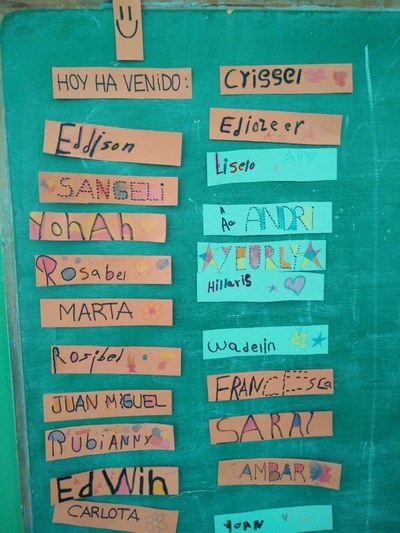 HOY HA VENIDO:
Eddison
SANGELI
YohAh
Rosabel
MARTA
Rosibel
JUAN MIGUEL
RUbiANNY
EdWin
CARLOTA
Crissel
Ediozeer
Liselo
ANDRI
YEURLY
Hillaris
Wadelin
FRANCESCA
SARAI
AMBAR
YOAN